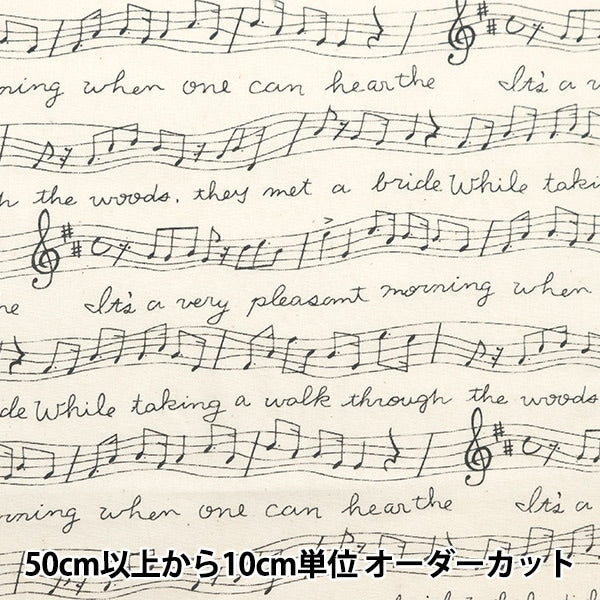 ning when one can hearthe It's a v
h the woods. they met a bride While taki
ne It's a very pleasamt morning when
de While taking a walk through the woods
rning when one can hearthe It's a
50cm以上から10cm単位 オーダーカット